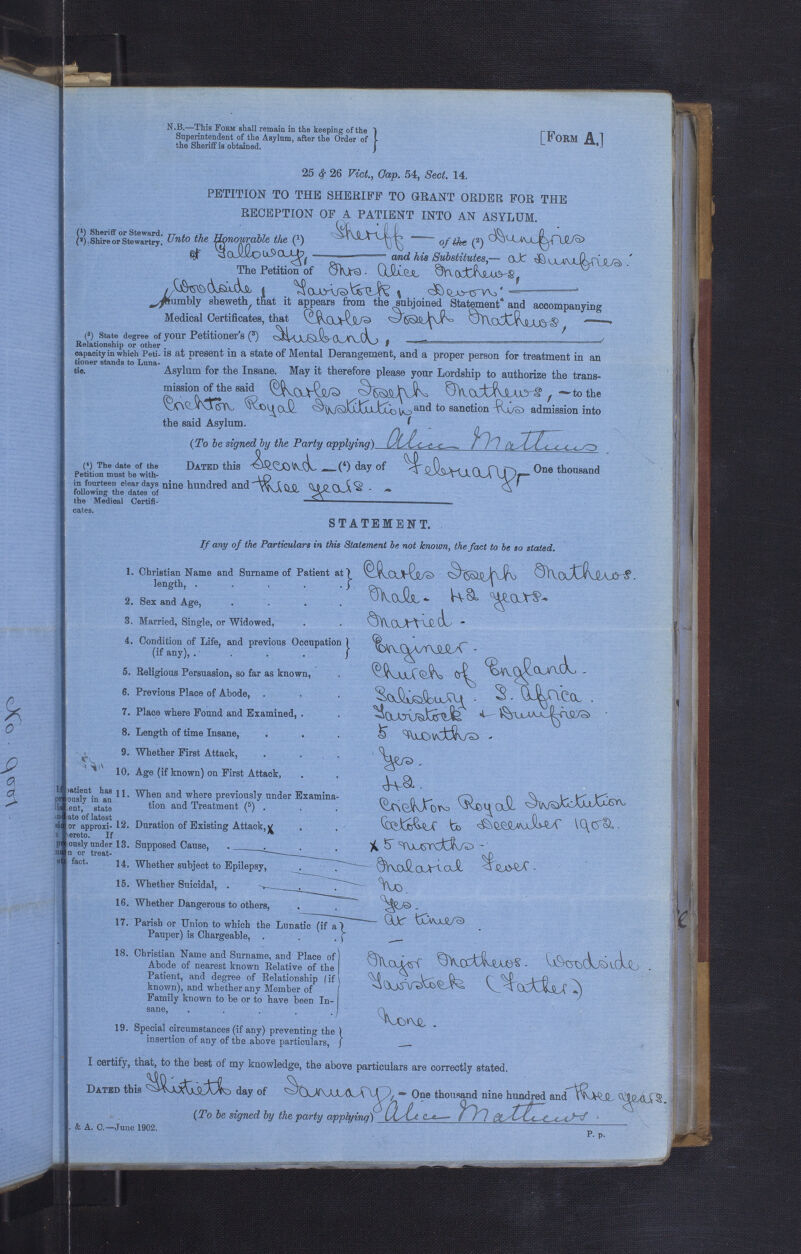 N.B.—This Form shall remain in the keeping of the
Superintendent of the Asylum, after the Order of
the Sheriff is obtained.
[Form A.]
25 & 26 Vict., Cap. 54, Sect. 14.
PETITION TO THE SHERIFF TO GRANT ORDER FOR THE
RECEPTION OF A PATIENT INTO AN ASYLUM.
(1) Sheriff or Steward.
(2) Shire or Stewartry.
Unto the Honourable the (1) Sheriff — of the (2) Dumfries
& Galloway, — and his Substitutes,— at Dumfries.
The Petition of Mrs. Alice Mathews,
Woodside, Tavistock, Devon. —
humbly sheweth, that it appears from the subjoined Statement and accompanying
Medical Certificates, that Charles Joseph Mathews, —
(3) State degree of
Relationship or other
capacity in which Peti-
tioner stands to Luna-
tic.
your Petitioner's (3) Husband, —
is at present in a state of Mental Derangement, and a proper person for treatment in an
Asylum for the Insane. May it therefore please your Lordship to authorize the trans-
mission of the said Charles Joseph Mathews, — to the
Crichton Royal Institution and to sanction his admission into
the said Asylum.
(To be signed by the Party applying) Alice Mathews
(4) The date of the
Petition must be with-
in fourteen clear days
following the dates of
the Medical Certifi-
cates.
Dated this Second — (4) day of February,— One thousand
nine hundred and three years. -
STATEMENT.
If any of the Particulars in this Statement be not known, the fact to be so stated.
1. Christian Name and Surname of Patient at
length, . . . . . Charles Joseph Mathews.
2. Sex and Age, . . . . Male - 42 years-
3. Married, Single, or Widowed, . . Married -
4. Condition of Life, and previous Occupation
(if any), . . . . . Engineer -
5. Religious Persuasion, so far as known, . Church of England.
6. Previous Place of Abode, . . . Salisbury. S. Africa.
7. Place where Found and Examined, . . Tavistock & Dumfries
8. Length of time Insane, . . . 5 months -
9. Whether First Attack, . . . Yes.
10. Age (if known) on First Attack, . . 42.
11. When and where previously under Examina-
tion and Treatment (5) . . . Crichton Royal Institution
October to December 1902.
12. Duration of Existing Attack, X . . X 5 months -
13. Supposed Cause, . . . Malarial Fever.
14. Whether subject to Epilepsy, . . No.
15. Whether Suicidal, . . . Yes.
16. Whether Dangerous to others, . . At times
17. Parish or Union to which the Lunatic (if a
Pauper) is Chargeable, . . . —
18. Christian Name and Surname, and Place of
Abode of nearest known Relative of the
Patient, and degree of Relationship (if
known), and whether any Member of
Family known to be or to have been In-
sane, . . . . . .
Major Mathews. Woodside.
Tavistock (Father.)
None.
19. Special circumstances (if any) preventing the
insertion of any of the above particulars, —
patient has
ously in an
ent, state
ate of latest
or approxi-
ereto. If
ously under
n or treat-
fact.
I certify, that, to the best of my knowledge, the above particulars are correctly stated.
Dated this Thirtieth day of January, - One thousand nine hundred and three years.
(To be signed by the party applying) Alice Mathews.
. & A. C.—June 1902.
P. p.